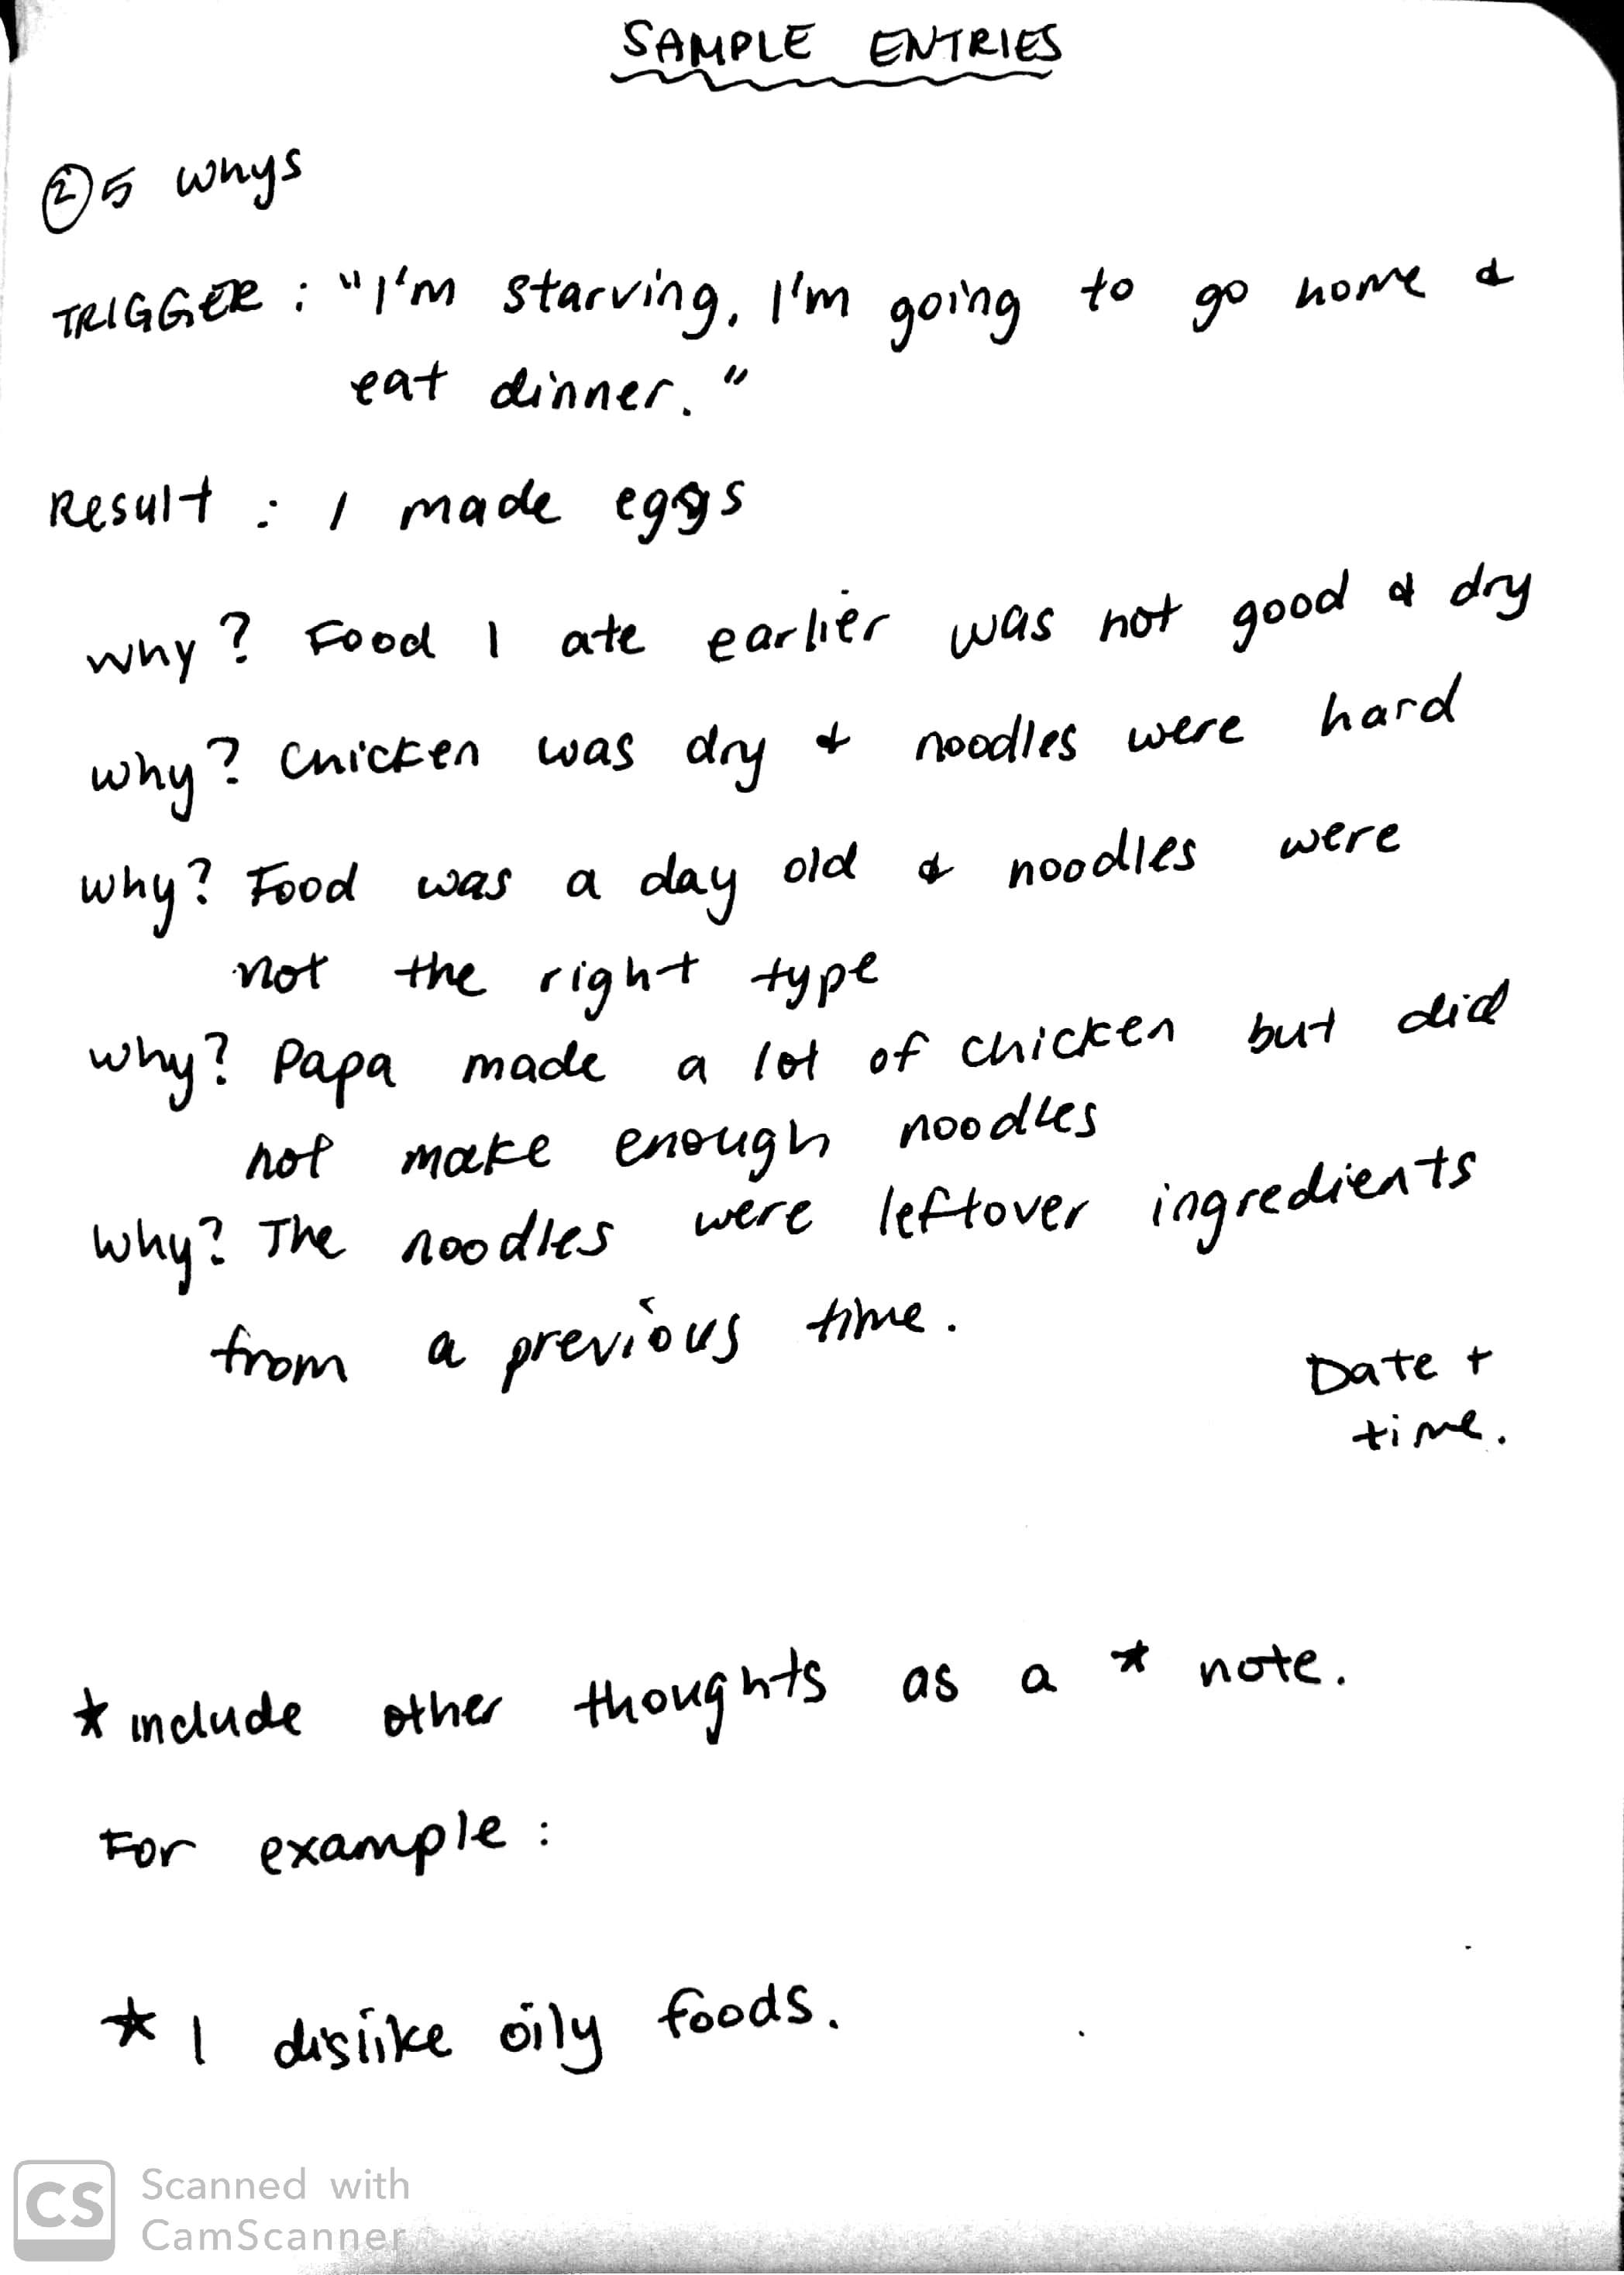 SAMPLE ENTRIES
② 5 whys
TRIGGER : "I'm starving, I'm going to go home &
eat dinner."
Result : I made eggs
why? Food I ate earlier was not good & dry
why? Chicken was dry & noodles were hard
why? Food was a day old & noodles were
not the right type
why? Papa made a lot of chicken but did
not make enough noodles
why? The noodles were leftover ingredients
from a previous time.
Date +
time.
* include other thoughts as a * note.
For example :
* I dislike oily foods.
CS Scanned with
CamScanner